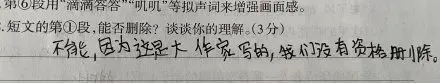 第⑥段用“滴滴答答”“叽叽”等拟声词来增强画面感。
.短文的第①段,能否删除?谈谈你的理解。(3分)
不能,因为这是大作家写的,我们没有资格删除。